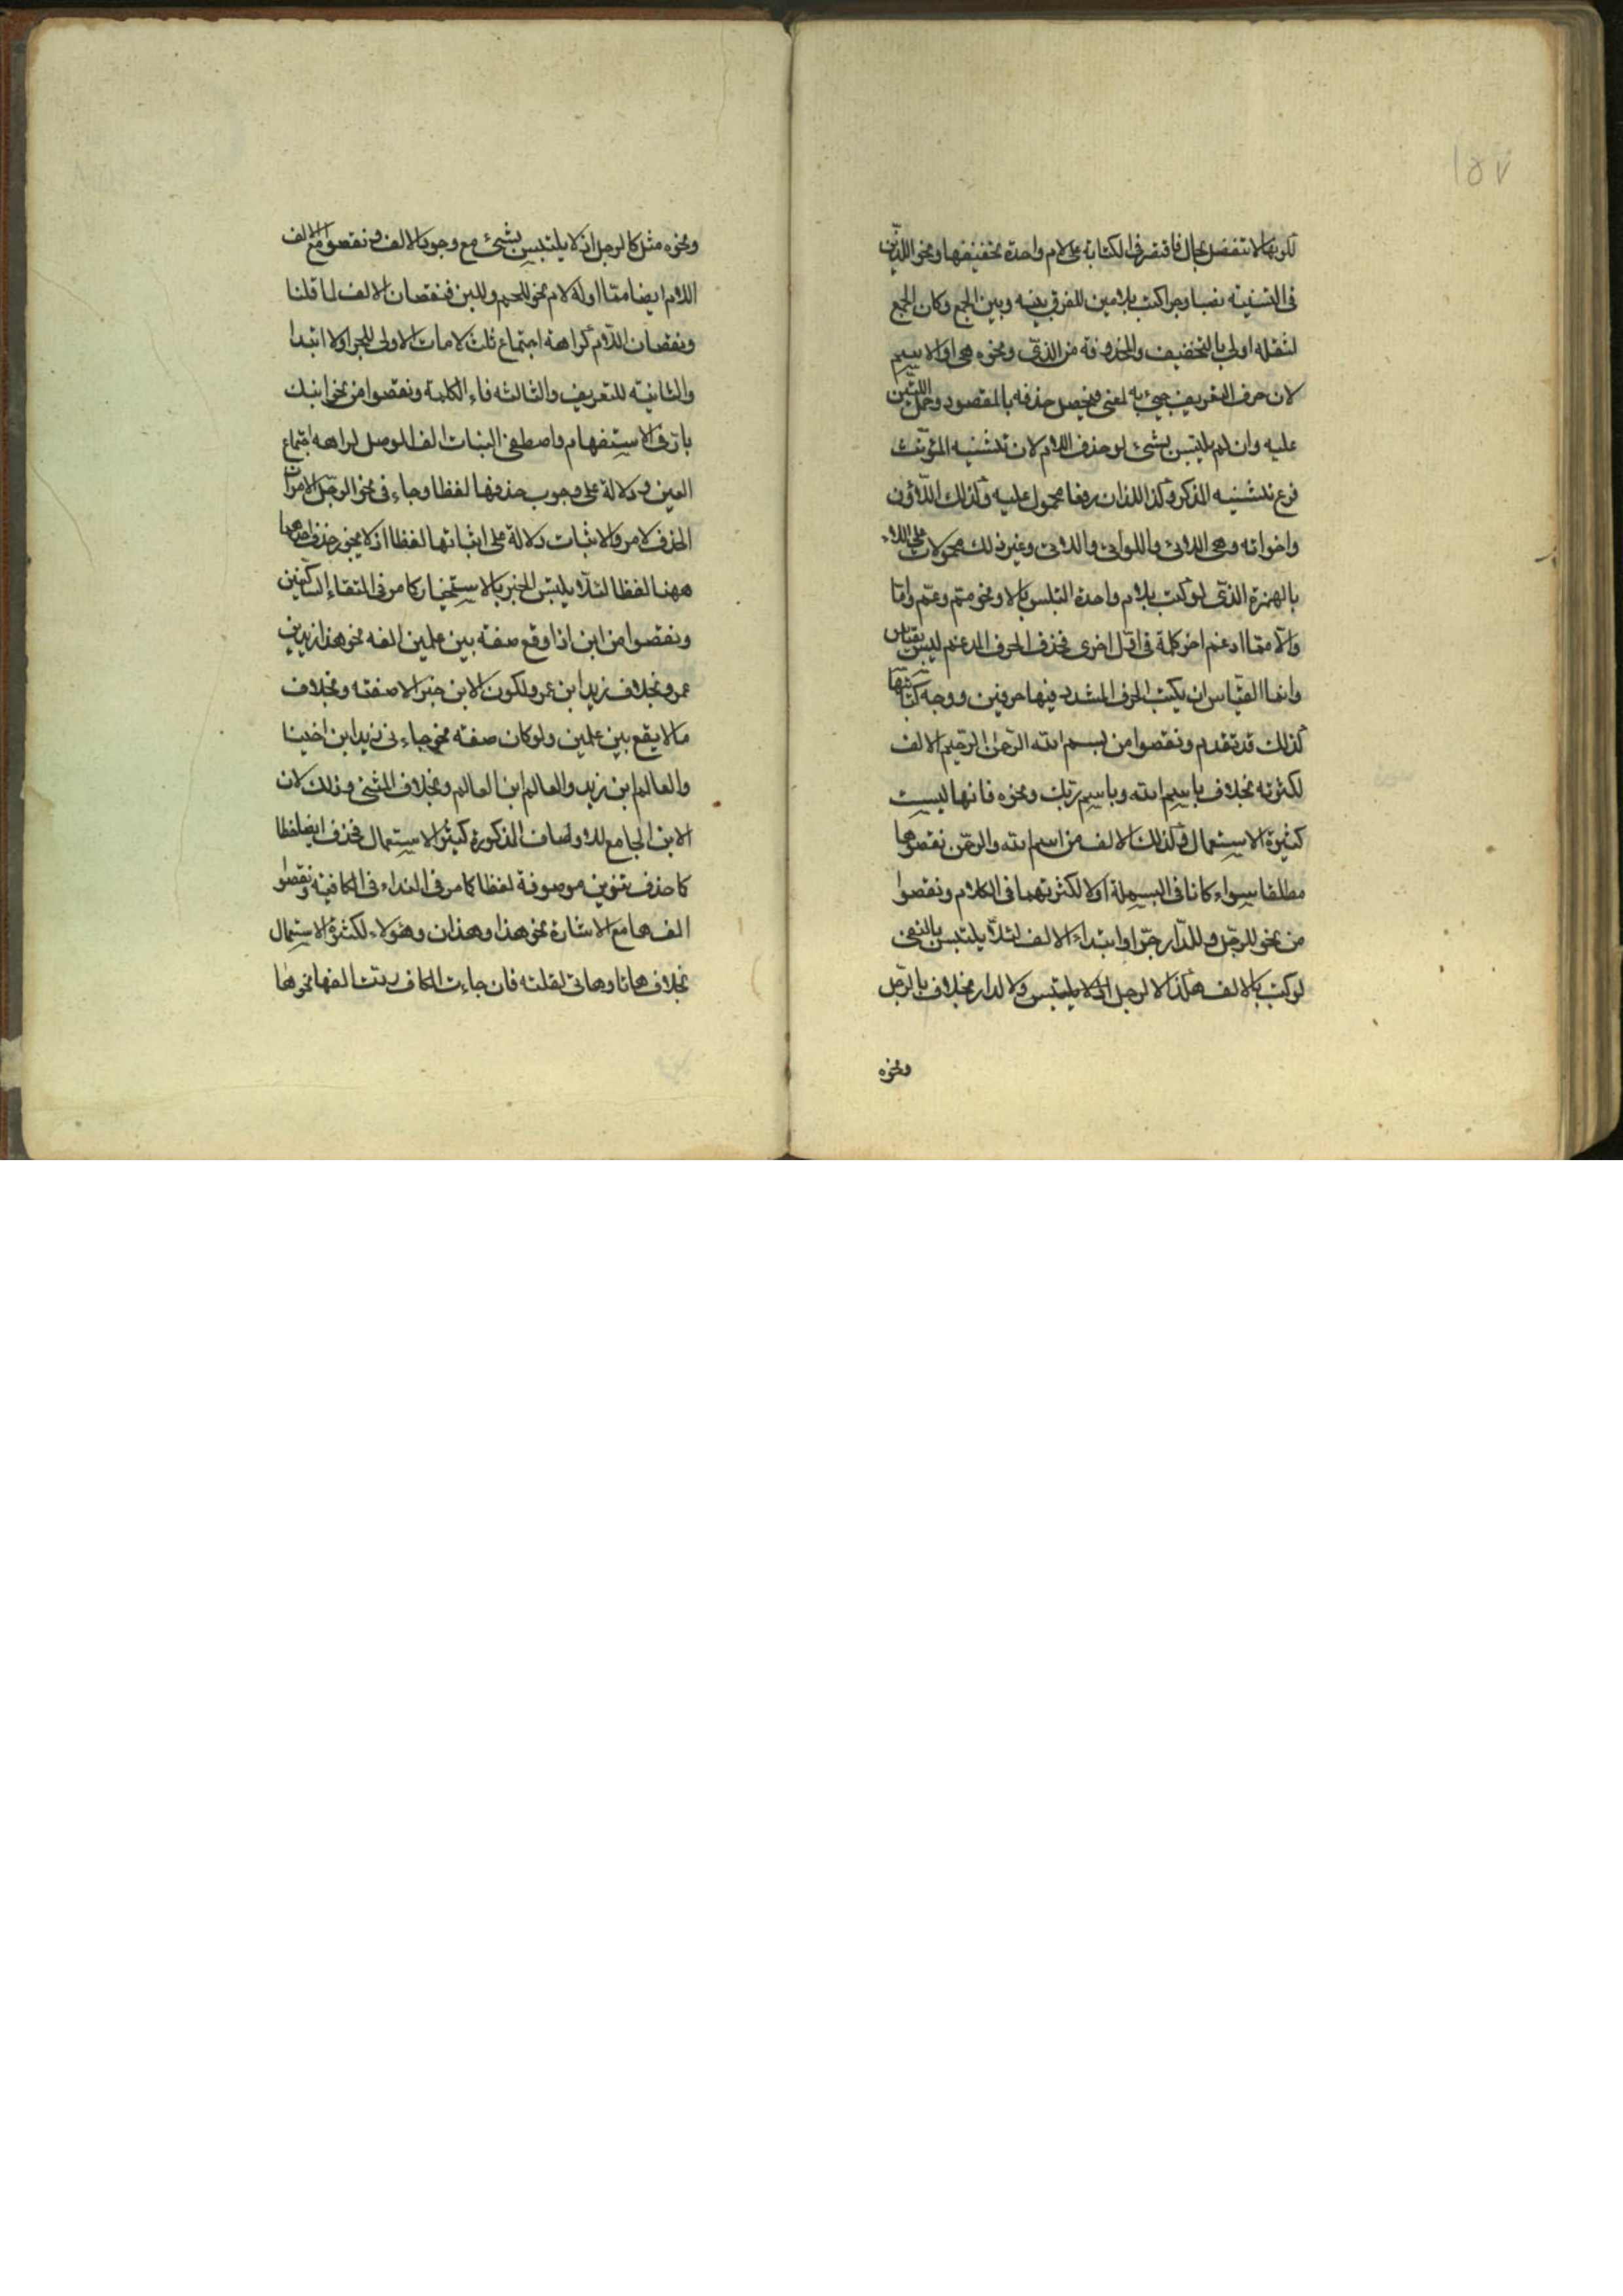 ١٥٧
لكونها لا تنفصل بحال فاقتصر فى الكتابة على لام واحدة تخفيفها ونحو اللذين
فى التثنية نصبا وجرا كتب بلامين للفرق بينه وبين الجمع وكان الجمع
لثقله اولى بالتخفيف والمحذوفة من الذى ونحوه هى او الاسم
لان حرف التعريف جىء به لمعنى فيحصل حذفه بالمقصود وحمل اللتين
عليه وان لم يلتبس بشىء لو حذف اللام لان تثنية المؤنث
فرع تثنية المذكر وكذا اللذان رفعا محمول عليه وكذلك اللاؤن
واخواته وهى اللائى واللواتى واللاتى وغير ذلك محمولات على اللاء
بالهمزة الذى لو كتب بلام واحدة التبس بالا ونحو مم وعم واما
والا مما ادغم اخر كلمة فى اول اخرى فحذف الحرف المدغم ليس بقياس
وانما القياس ان يكتب الحرف المشدد فيها حرفين ووجه كتابتها
كذلك قد تقدم ونقصوا من بسم الله الرحمن الرحيم الالف
لكثرته بخلاف باسم الله وباسم ربك ونحوه فانها ليست
كثيرة الاستعمال وكذلك الالف من اسم الله والرحمن نقصوها
مطلقا سواء كانا فى البسملة اولا لكثرتهما فى الكلام ونقصوا
من نحو للرجل وللدار جرا وابتداء الالف لئلا يلتبس بالنفى
لو كتب بالالف هكذا لا لرجل لا يلتبس ولا لدار بخلاف بالرجل
ونحوه
ونحوه مثل كالرجل اذ لا يلتبس بشىء مع وجود الالف ونقصوا مع الالف
اللام ايضا مما اوله لام نحو للحم وللبن فنقصان الالف لما قلنا
ونقصان اللام كراهة اجتماع ثلث لامات الاولى للجر او الابتدا
والثانية للتعريف والثالثه فاء الكلمة ونقصوا من نحو ابنك
بار فى الاستفهام واصطفى البنات الف الوصل كراهه اجتماع
العين ودلالة على وجوب حذفها لفظا وجاء فى نحو الرجل الامران
الحذف لامر والاثبات دلالة على اثباتها لفظا اذ لا يجوز حذف احدهما
ههنا لفظا لئلا يلتبس الخبر بالاستخبار كما مر فى التقاء الساكنين
ونقصوا من ابن اذا وقع صفة بين علمين الفه نحو هذا زيد بن
عمرو بخلاف زيد ابن عمرو لكون الابن خبر الا صفته وبخلاف
ما لا يقع بين علمين ولو كان صفته نحو جاءنى زيد ابن اخينا
والعالم ابن زيد والعالم ابن العالم وبخلاف المثنى وذلك لان
الابن الجامع للاوصاف المذكورة كثير الاستعمال فحذف ايضا لفظا
كما حذف تنوين موصوفة لفظا كما مر فى النداء فى الكافية ونقصوا
الف ها مع الاشارة نحو هذا وهذان وهؤلاء لكثرة الاستعمال
بخلاف هاتا وهاتى لقلته فان جاءت الكاف ردت الفها نحو ها